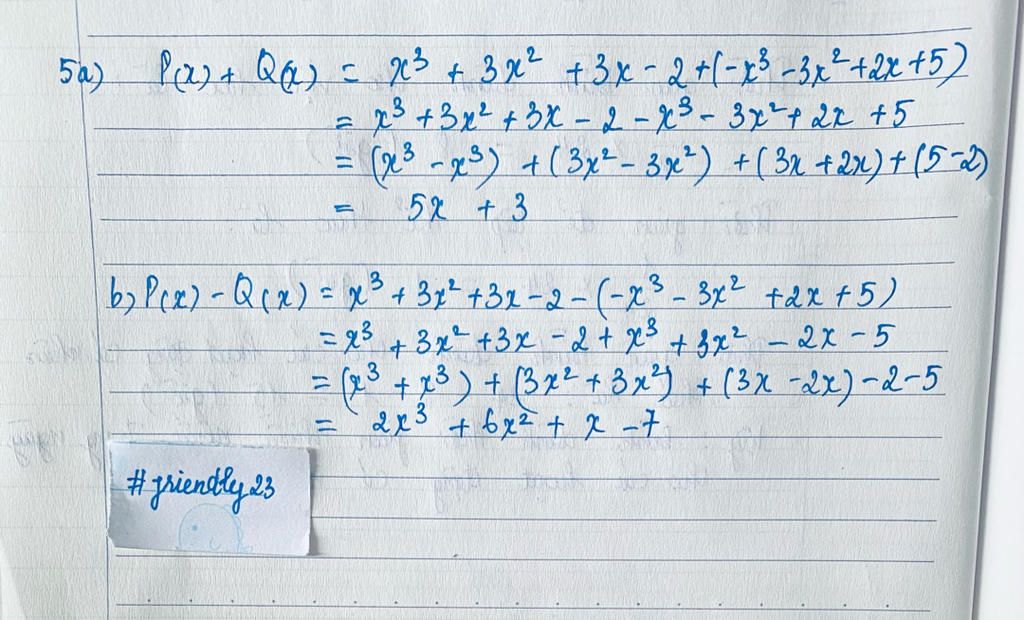 5a) P(x) + Q(x) = x³ + 3x² + 3x - 2 + (-x³ - 3x² + 2x + 5)
= x³ + 3x² + 3x - 2 - x³ - 3x² + 2x + 5
= (x³ - x³) + (3x² - 3x²) + (3x + 2x) + (5-2)
= 5x + 3
b) P(x) - Q(x) = x³ + 3x² + 3x - 2 - (-x³ - 3x² + 2x + 5)
= x³ + 3x² + 3x - 2 + x³ + 3x² - 2x - 5
= (x³ + x³) + (3x² + 3x²) + (3x - 2x) - 2 - 5
= 2x³ + 6x² + x - 7
#friendly23